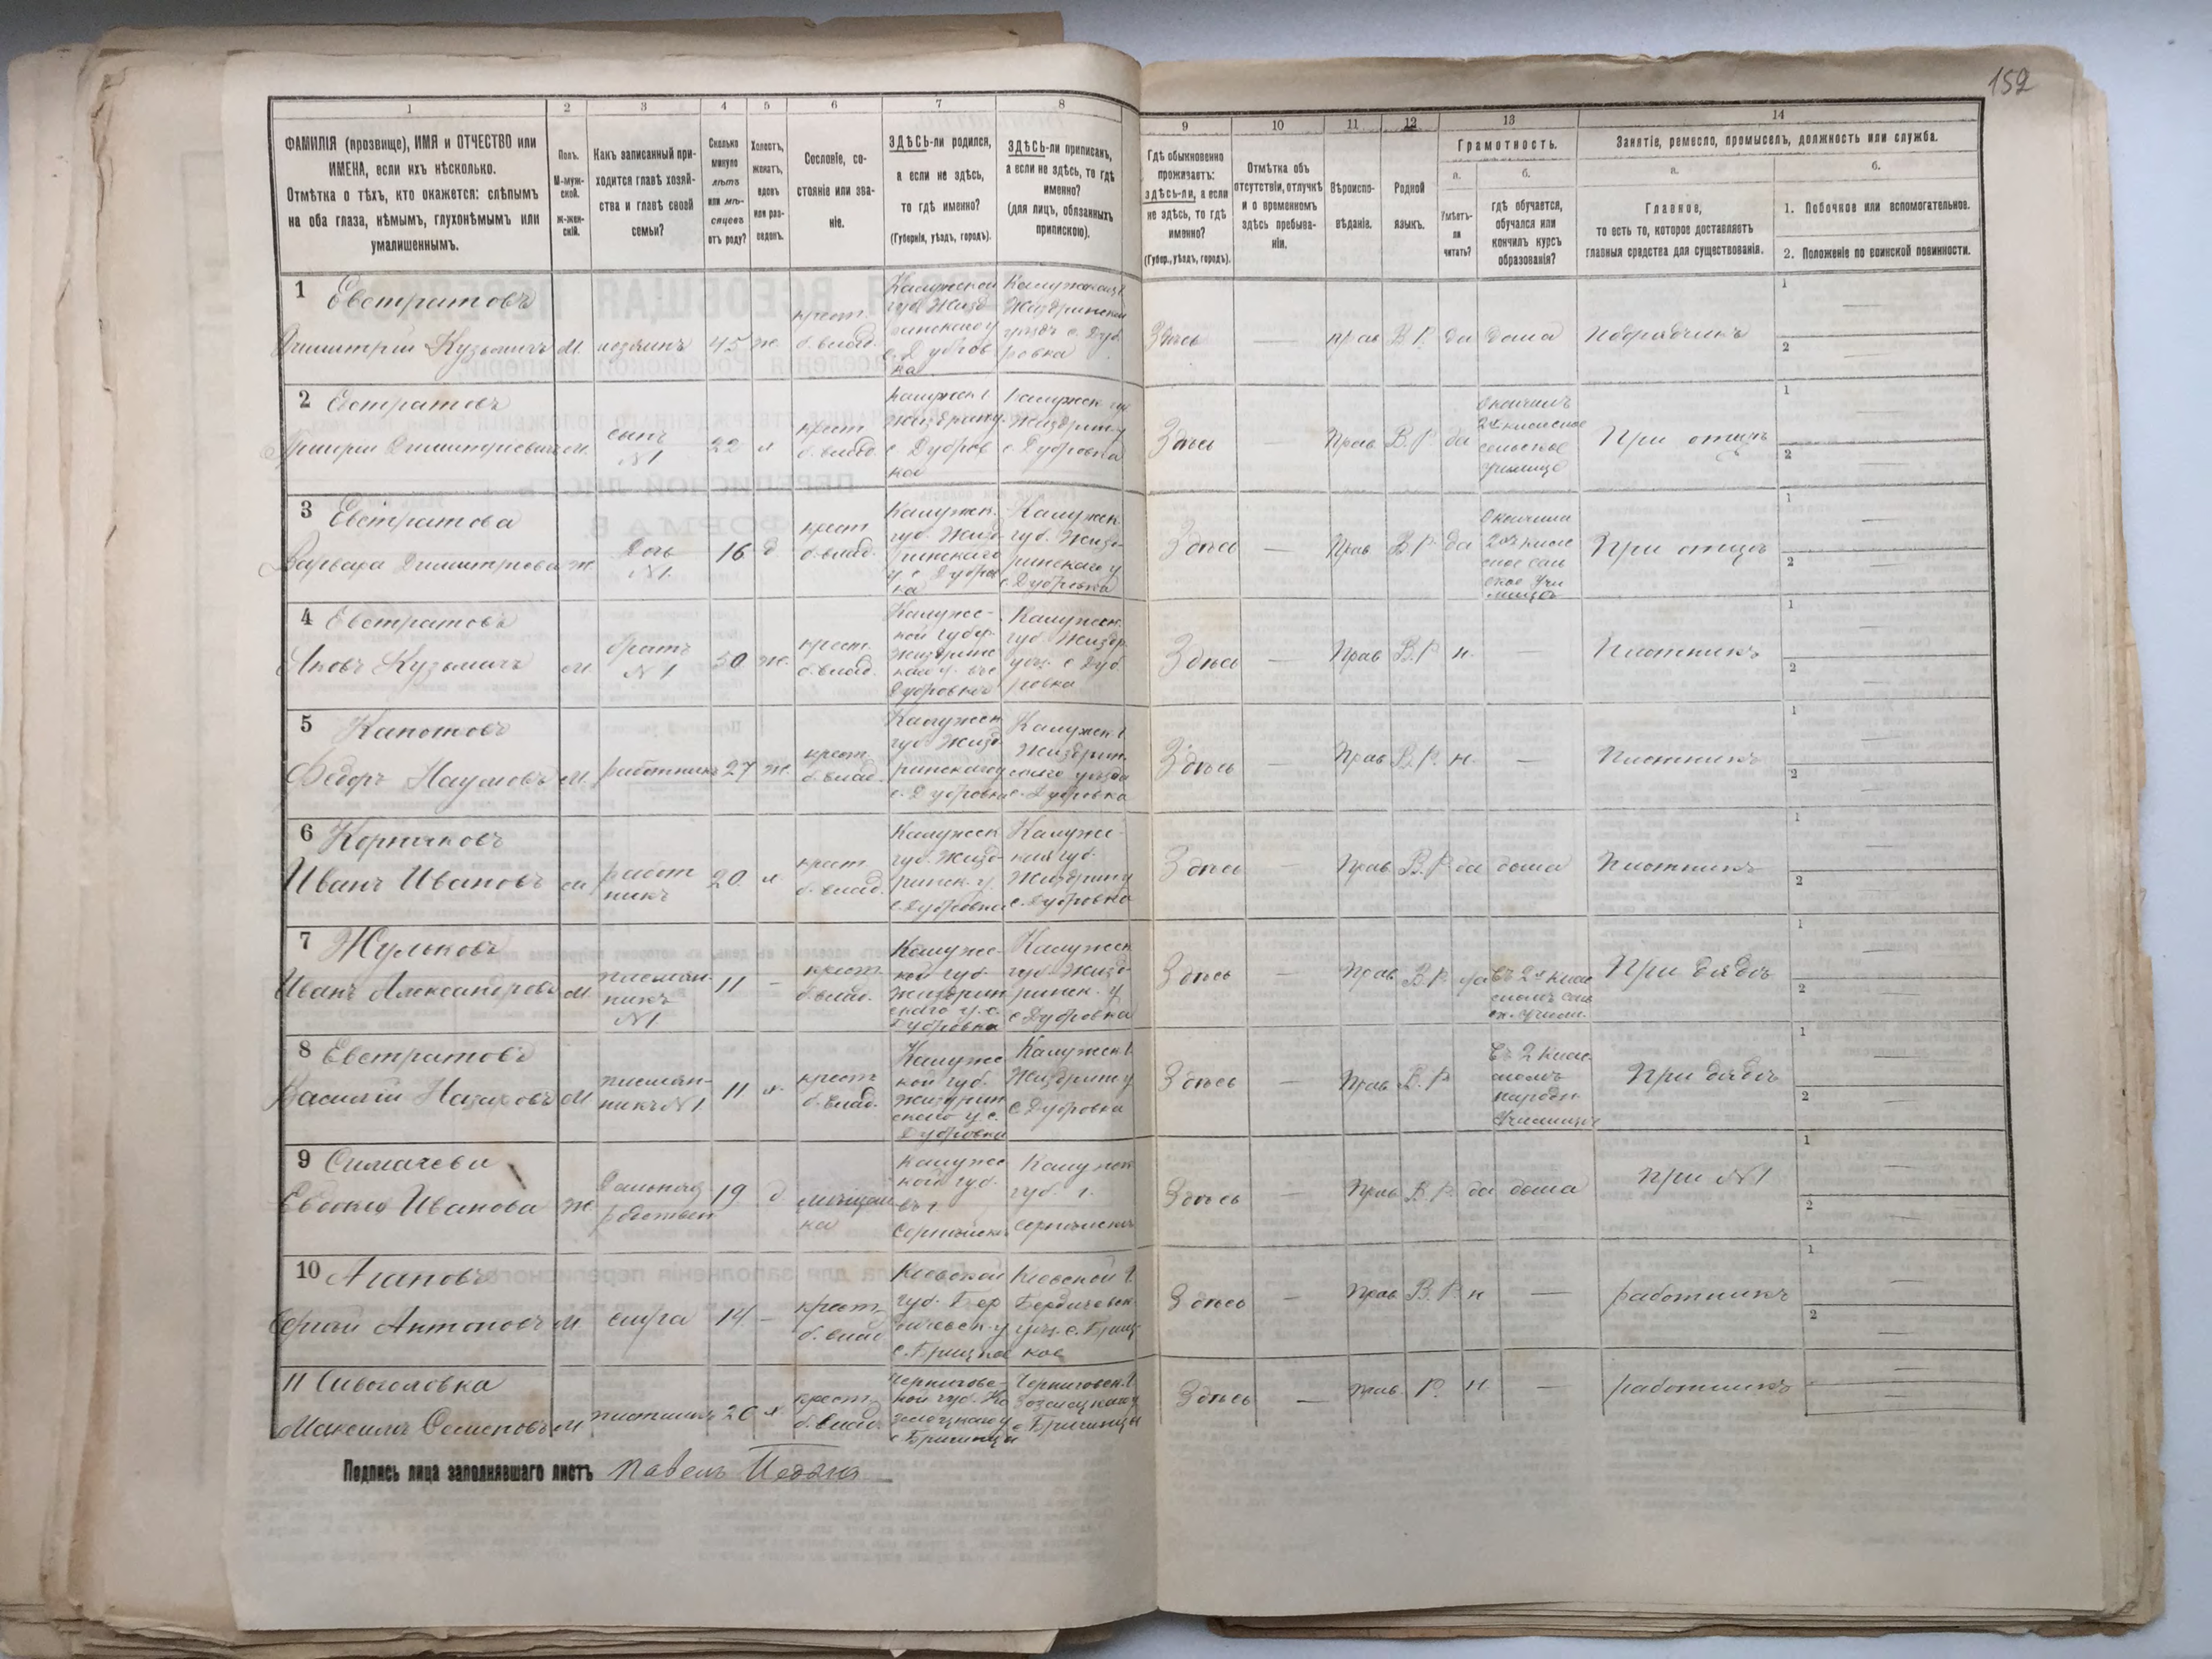 152
1
2
3
4
5
6
7
8
9
10
11
12
13
14
ФАМИЛІЯ (прозвище), ИМЯ и ОТЧЕСТВО или
ИМЕНА, если ихъ нѣсколько.
Отмѣтка о тѣхъ, кто окажется: слѣпымъ
на оба глаза, нѣмымъ, глухонѣмымъ или
умалишеннымъ.
Полъ.
М-муж-
ской.
Ж-жен-
скій.
Какъ записанный при-
ходится главѣ хозяй-
ства и главѣ своей
семьи?
Сколько
минуло
лѣтъ
или мѣ-
сяцевъ
отъ роду?
Холостъ,
женатъ,
вдовъ
или раз-
веденъ.
Сословіе, со-
стояніе или зва-
ніе.
ЗДѢСЬ-ли родился,
а если не здѣсь,
то гдѣ именно?
(Губернія, уѣздъ, городъ).
ЗДѢСЬ-ли приписанъ,
а если не здѣсь, то гдѣ
именно?
(для лицъ, обязанныхъ
припискою).
Гдѣ обыкновенно
проживаетъ:
здѣсь-ли, а если
не здѣсь, то гдѣ
именно?
(Губер., уѣздъ, городъ).
Отмѣтка объ
отсутствіи, отлучкѣ
и о временномъ
здѣсь пребыва-
ніи.
Вѣроиспо-
вѣданіе.
Родной
языкъ.
Грамотность.
а.
Умѣетъ-
ли
читать?
б.
гдѣ обучается,
обучался или
кончилъ курсъ
образованія?
Занятіе, ремесло, промыселъ, должность или служба.
а.
Главное,
то есть то, которое доставляетъ
главныя средства для существованія.
б.
1. Побочное или вспомогательное.
2. Положеніе по воинской повинности.
1 Евстратовъ
Димитрій Кузьмичъ
М.
хозяинъ
45
ж.
крест.
б. влад.
Калужской
губ. Жизд
ринскаго у
с. Дубров
ка
Калужской г.
Жиздринской
уѣздъ с. Дуб
ровка
Здѣсь
—
прав
В. Р.
да
дома
подрядчикъ
1 —
2 —
2 Евстратовъ
Григорій Димитріевичъ
М.
сынъ
№1
22
х
крест
б. влад.
Калужск г
Жиздрин у.
с Дубров
ка
Калужск гу
Жиздрин у
с Дубровка
Здѣсь
—
Прав
В. Р
да
Окончилъ
2х классное
сельское
училище
При отцѣ
1 —
2 —
3 Евстратова
Варвара Димитріева
ж.
Дочь
№1.
16
д
крест
б. влад.
Калужск.
губ. Жизд
ринскаго
у с Дубров
ка
Калужск.
губ. Жизд-
ринскаго у
с. Дубровка
Здѣсь
—
Прав
В. Р.
да
Окончила
2хъ клас
сное сель
ское учи
лище
При отцѣ
1 —
2 —
4 Евстратовъ
Яковъ Кузьмичъ
М.
братъ
№1
50
ж.
крест.
б. влад.
Калужс-
кой губер.
Жиздринс
каго у. въ с
Дубровкѣ
Калужск.
губ. Жиздр.
уѣз. с Дуб
ровка
Здѣсь
—
Прав
В. Р
н.
—
Плотникъ
1 —
2 —
5
Федоръ Наумовъ
М.
работникъ
27
ж.
крест.
б. влад.
Калужск
губ. Жизд
ринскаго у
с. Дубровка
Калужск. г
Жиздрин
скаго уѣзда
с. Дубровка
Здѣсь
—
Прав
В. Р.
н.
—
Плотникъ
1 —
2 —
6
Иванъ Ивановъ
м
работ
никъ
20
х
крест.
б. влад.
Калужск
губ. Жизд-
ринск. у.
с. Дубровка
Калужс-
кая губ.
Жиздрин у
с. Дубровка
Здѣсь
—
Прав
В. Р.
да
дома
Плотникъ
1 —
2 —
7 Жульковъ
Иванъ Александровъ
М
племян-
никъ
№1
11
—
крест.
б. влад.
Калужс-
кой губ.
Жиздрин
скаго у. с.
Дубровка
Калужск
губ. Жизд-
ринск. у
с Дубровка
Здѣсь
—
Прав
В. Р.
да
въ 2х клас
сномъ сель
ск. Училищ.
При дядѣ
1 —
2 —
8 Евстратовъ
Василій Назаровъ
М
племян-
никъ №1
11
х.
крестъ
б. влад.
Калужс
кой губ.
Жиздрин
скаго у. с.
Дубровка
Калужск г.
Жиздрин у
с Дубровка
Здѣсь
—
Прав
В. Р.
Въ 2 клас
сномъ
народн.
Училищѣ
При дядѣ
1 —
2 —
9
Евдокія Иванова
ж.
19
д
мѣщан
ка
Калужс
кой губ.
въ г.
Серпейскѣ
Калужск
губ. г.
Серпейскъ
Здѣсь
—
Прав
В. Р.
да
дома
при №1
1 —
2 —
10 Агаповъ
Сергѣй Антоновъ
М.
слуга
14
—
крест.
б. влад
Кіевской
губ. Бер
дичевск. у
с. Брицкое
Кіевской г.
Бердичевск.
уѣз. с. Бриц
кое
Здѣсь
—
Прав
В. Р.
н
—
работникъ
1 —
2 —
11 Сивоголовка
Максимъ Семеновъ
М
плотникъ
20
х.
крест.
б. влад.
Черниговс-
кой губ. Ко
зелецкаго у
Черниговск. г
Козелецкаго у
Здѣсь
—
Прав.
Р.
н.
—
работникъ
—
—
Подпись лица заполнявшаго листъ Павелъ